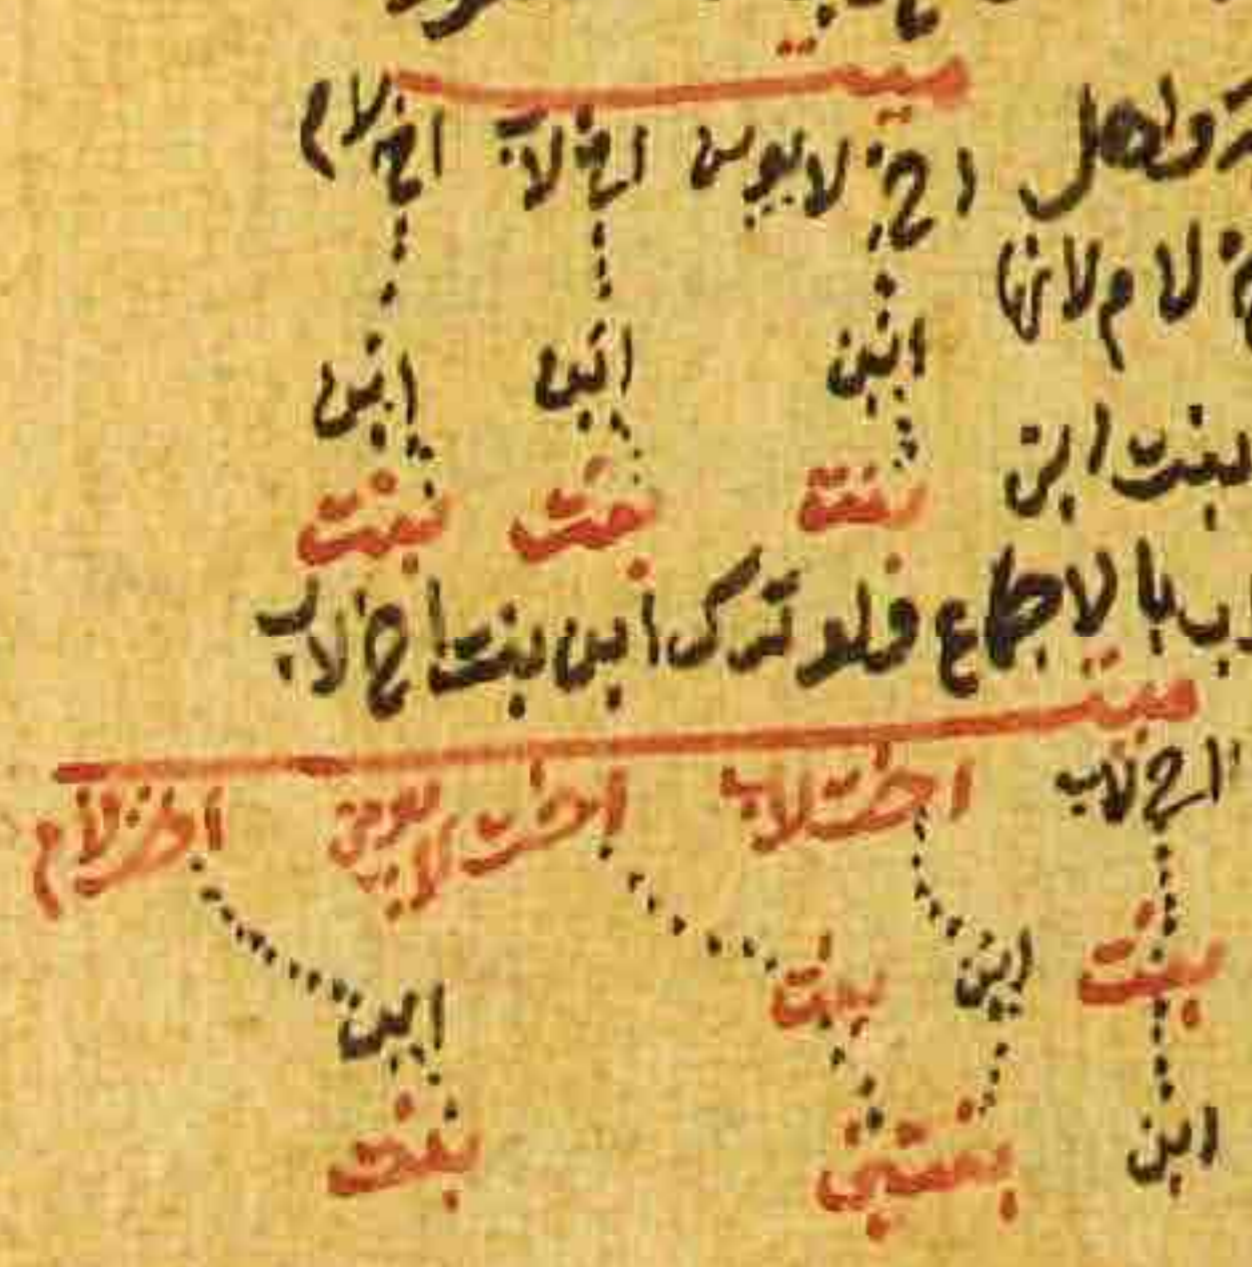 ميت
اخ لابوين اخ لاب اخ لام
ولعل
لام لان
ابن ابن ابن
بنت ابن
بنت بنت بنت
ب بالاجماع فلو ترك ابن بنت اخ لاب
ميت
اخ لاب اخت لاب اخت لابوين اخت لام
بنت ابن بنت ابن
ابن بنتين بنت